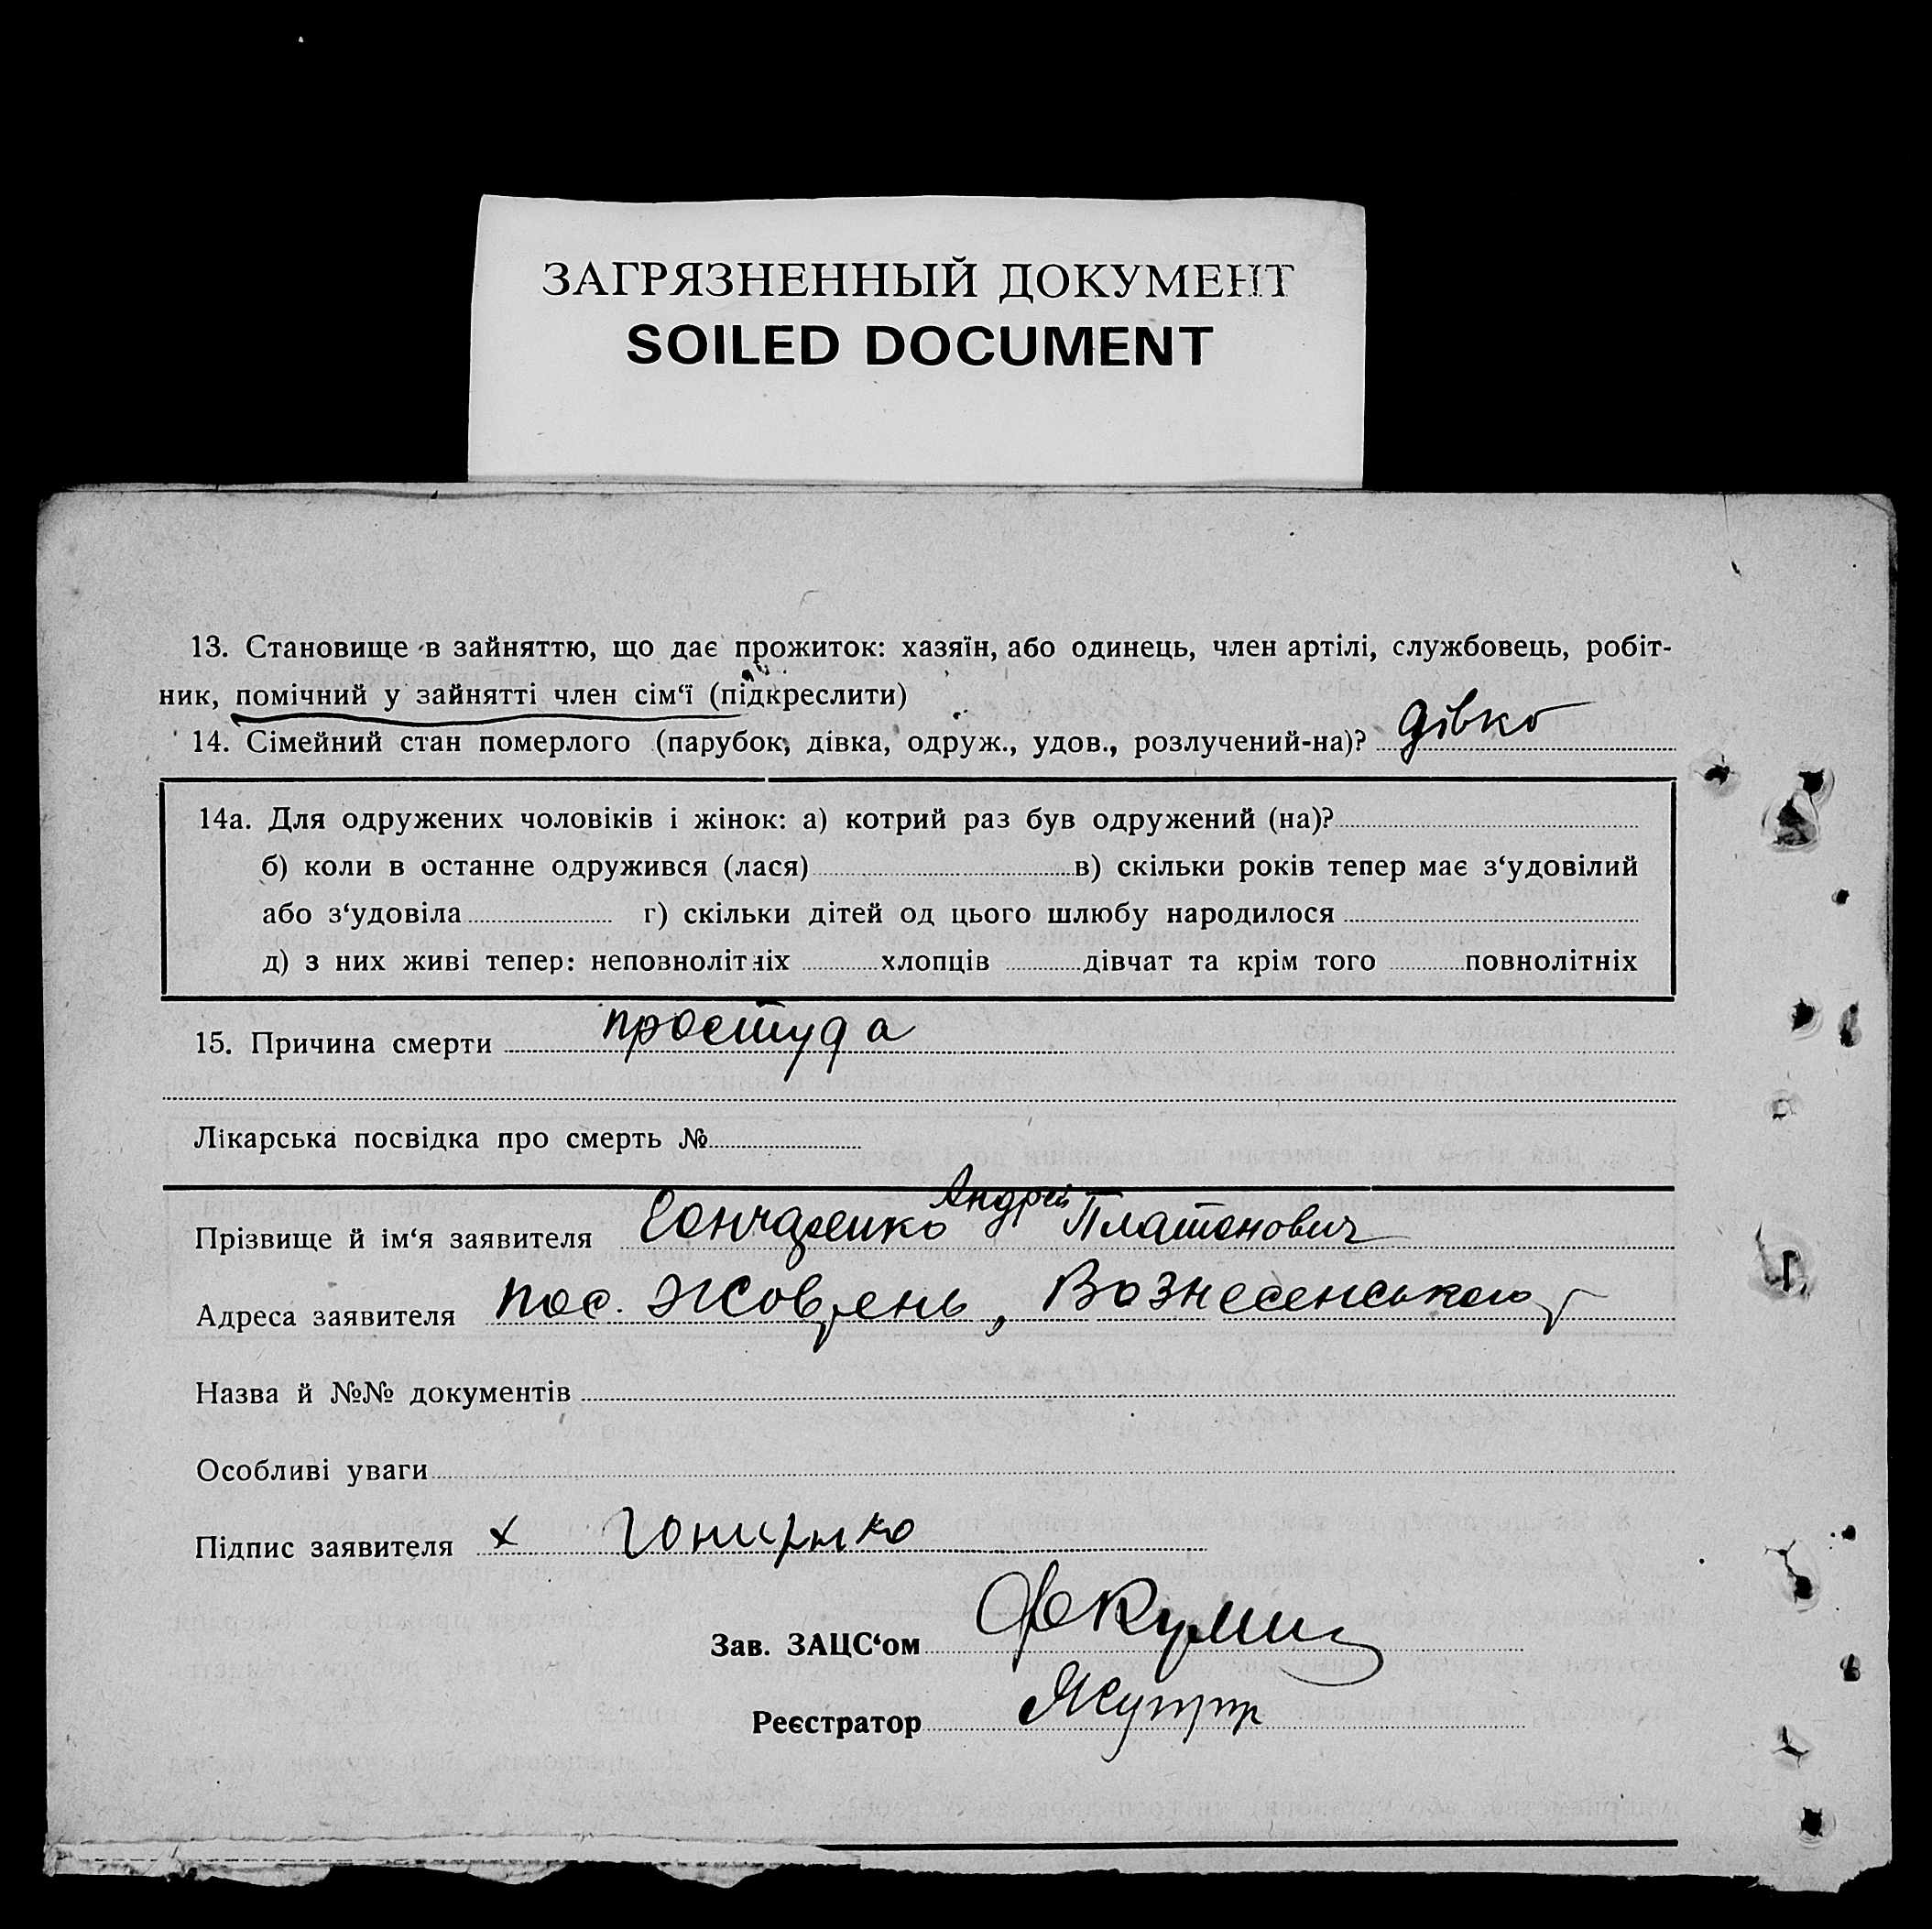 ЗАГРЯЗНЕННЫЙ ДОКУМЕНТ
SOILED DOCUMENT
13. Становище в зайняттю, що дає прожиток: хазяїн, або одинець, член артілі, службовець, робіт-
ник, помічний у зайнятті член сім‘ї (підкреслити)
14. Сімейний стан померлого (парубок, дівка, одруж., удов., розлучений-на)? дівко
14а. Для одружених чоловіків і жінок: а) котрий раз був одружений (на)?
б) коли в останне одружився (лася) в) скільки років тепер має з‘удовілий
або з‘удовіла г) скільки дітей од цього шлюбу народилося
д) з них живі тепер: неповнолітніх хлопців дівчат та крім того повнолітніх
15. Причина смерти простуда
Лікарська посвідка про смерть №
Прізвище й ім‘я заявителя Гончаренко Андрей Платонович
Адреса заявителя пос. Жовтень, Вознесенського
Назва й №№ документів
Особливі уваги
Підпис заявителя х
Зав. ЗАЦС‘ом
Реєстратор